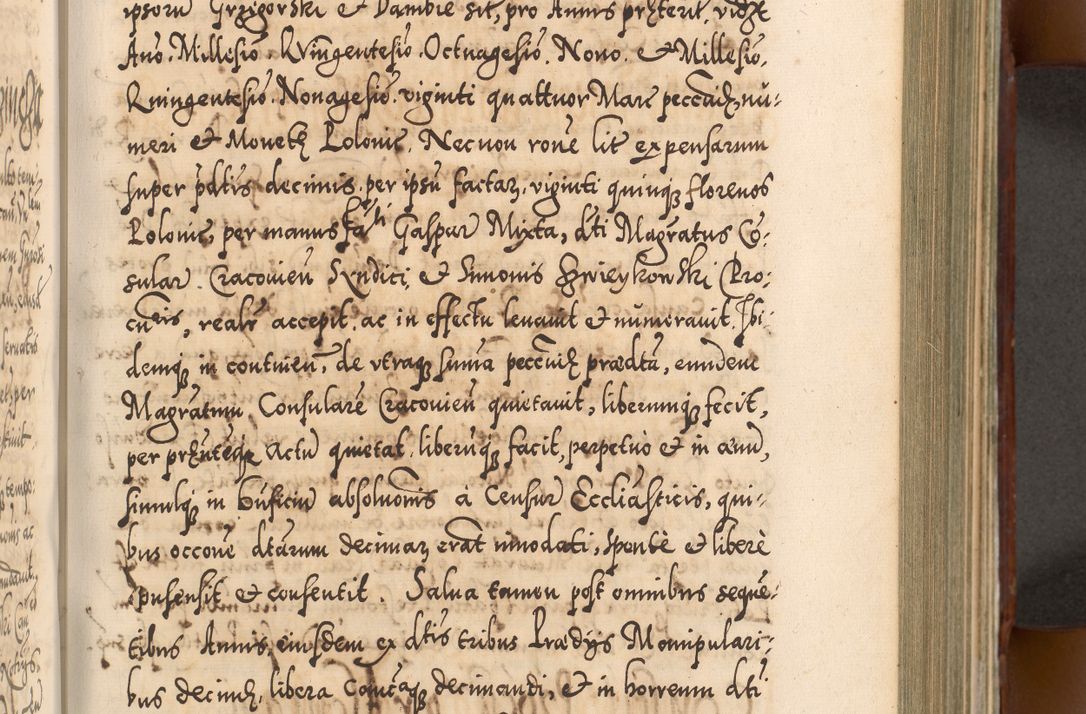 ipsoru Grzigorski & Dambie sit, pro Annis præterit. vidz
Ano. Millesio. Qvingentesio. Octuagesio. Nono. & Millesio.
Quingentesio. Nonagesio. viginti quattuor Marc peccaiz, nu-
meri & Monetæ Polonic. Necnon rone lit expensarum
super pdtis decimis per ipsu factaz, viginti quinqz florenos
Polonic, per manus Gaspar Mixta, dti Magratus Co-
sular. Cracovien Syndici, & Simonis Zwieykowski Pro-
cueris, realr accepit, ac in effectu levavit & numeravit. Ibi-
demqz in continen, de utraqz suma peccuiæ prædta, eundem
Magratum Consulare Cracovien quietavit, liberumqz fecit,
per prnteqz Actu quietat liberuqz facit, perpetuo & in ævu,
simulqz in bnficiu absolvonis à Censur Ecclīasticis, qui-
bus occone dtarum decimaz erat inodati, sponte & liberè
consensit & consentit. Salva tamen post omnibus seque-
tibus Annis, eiusdem ex dtis tribus Prædijs Manipulari-
bus decimæ, libera decimandi, & in horreum dti